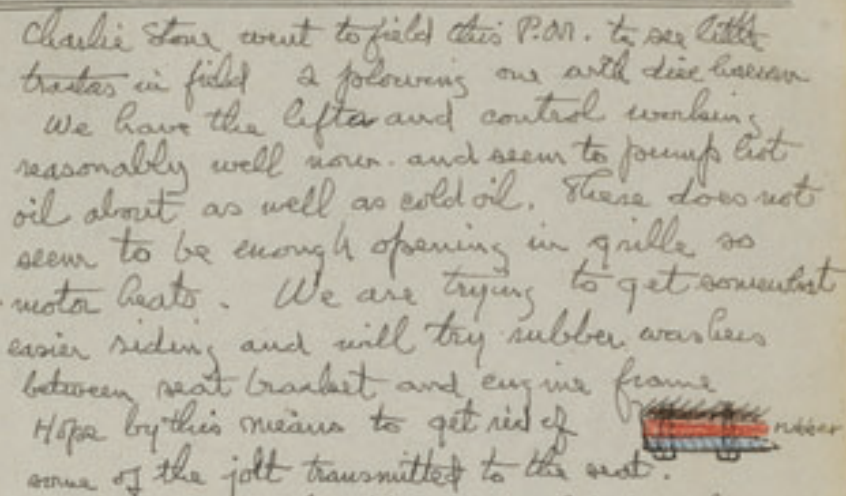 Charlie Stone went to field this P.M. to see little
tractors in field 2 plowing one with disc harrow
We have the lifta and control working
reasonably well now. and seem to pump hot
oil about as well as cold oil. There does not
seem to be enough opening in grille so
motor heats. We are trying to get somewhat
easier riding and will try rubber washers
between seat bracket and engine frame
Hope by this means to get rid of
rubber
some of the jolt transmitted to the seat.